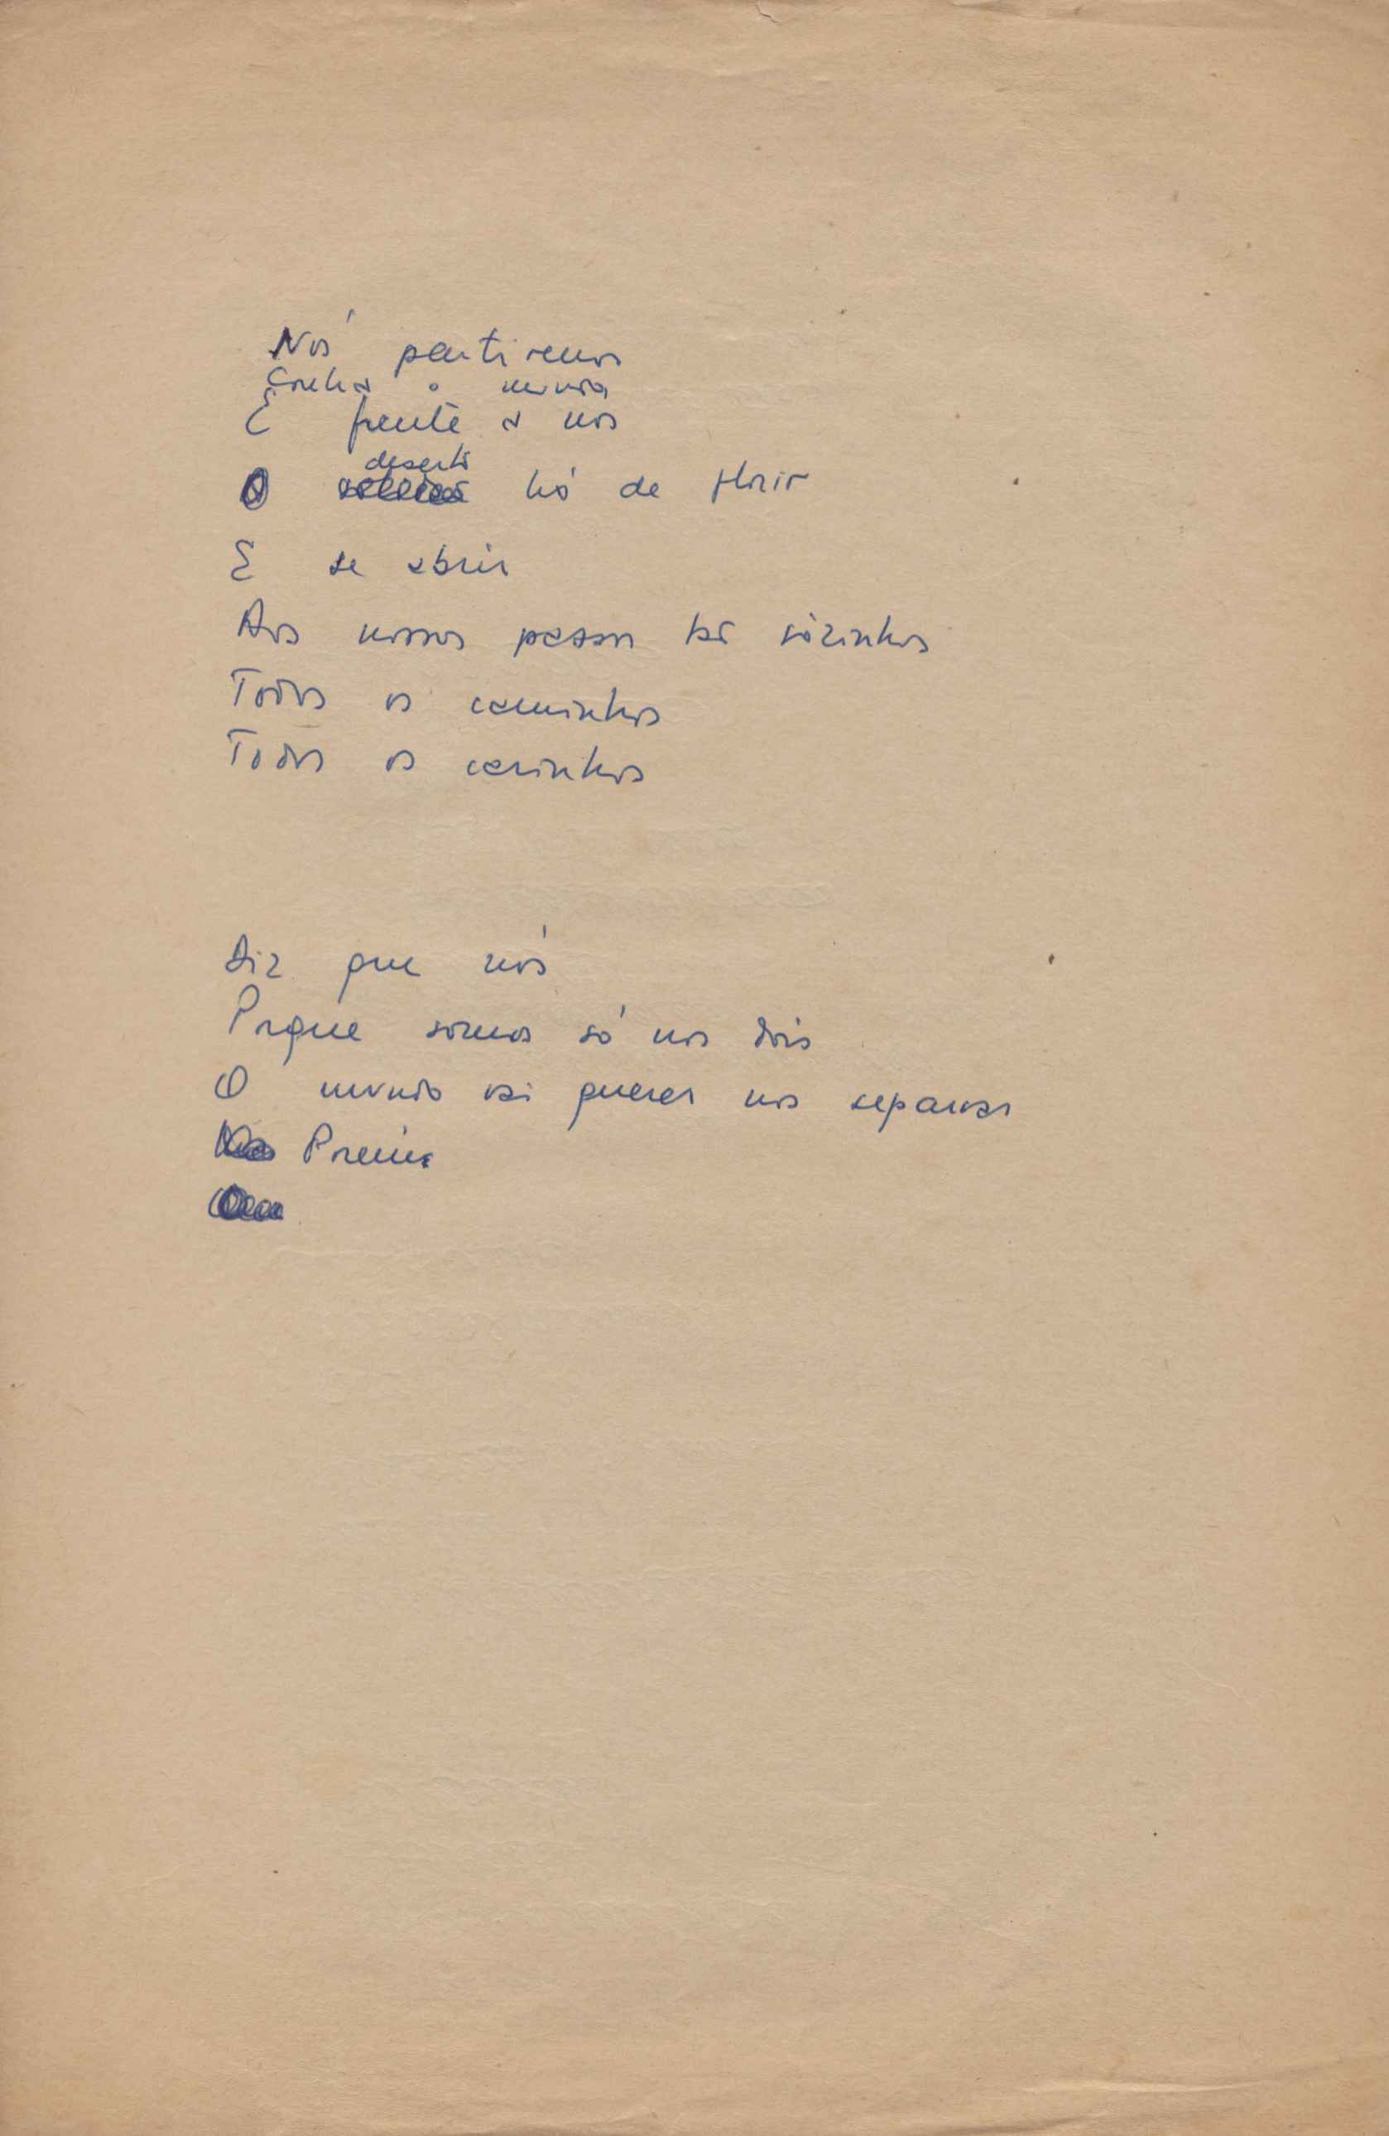 Nós partiremos
Contra o mundo
E frente a nós
O deserto há de florir
E se abrir
Aos nossos passos tão sòzinhos
Todos os caminhos
Todos os carinhos
Diz que nós
Porque somos só nos dois
O mundo vai querer nos separar